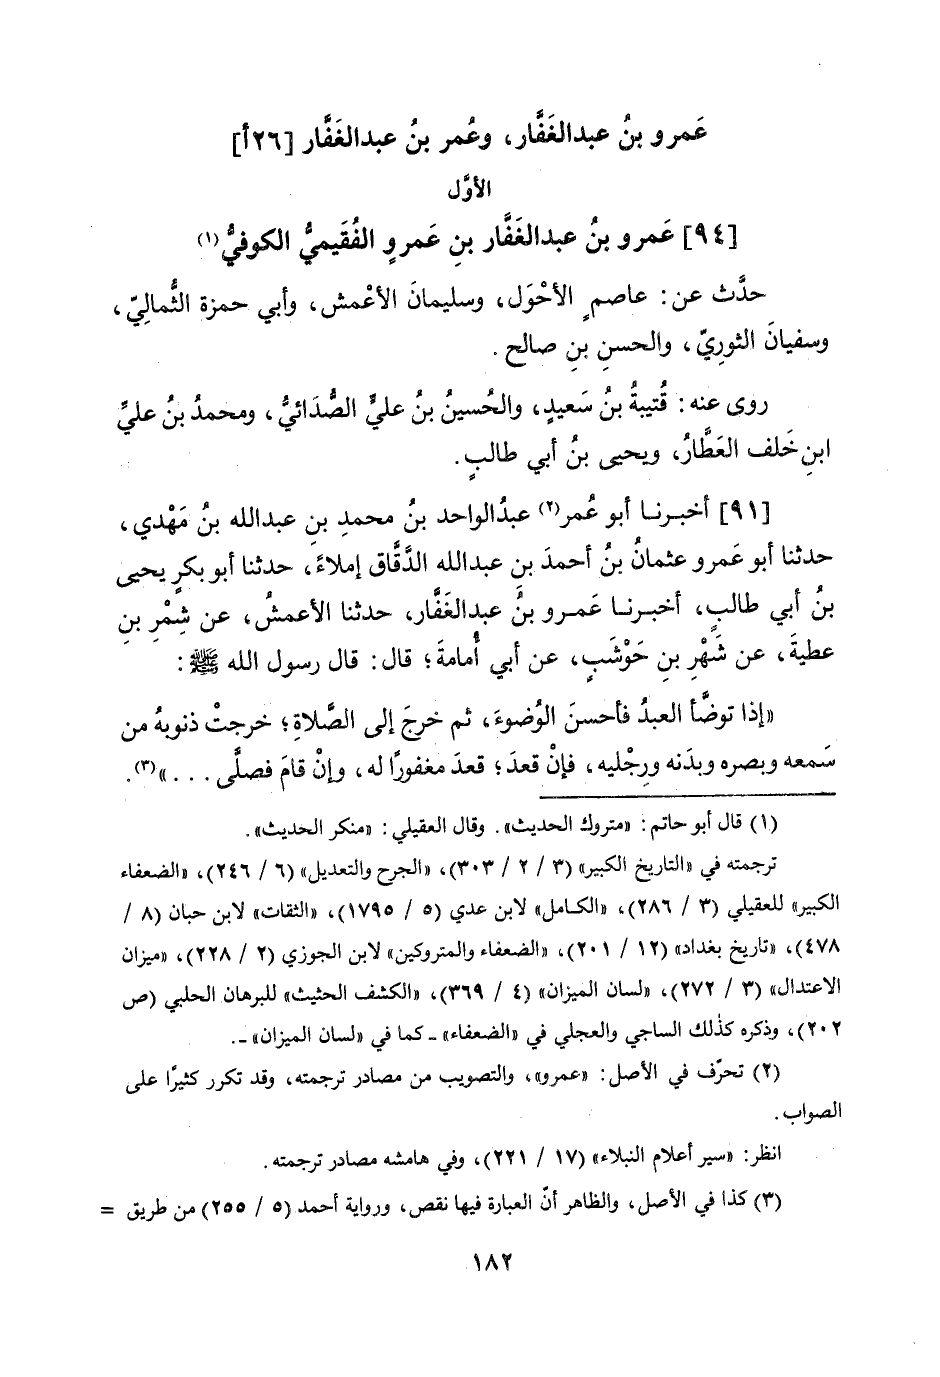 عَمرو بنُ عبدالغَفَّار، وعُمر بنُ عبدالغَفَّار [٢٦أ]
الأوَّل
[٩٤] عَمرو بنُ عبدالغَفَّار بنِ عَمرٍو الفُقَيميُّ الكوفيُّ(١)
حدَّث عن: عاصمٍ الأحْوَل، وسليمانَ الأعْمش، وأبي حمزة الثُّماليّ،
وسفيانَ الثوريّ، والحسنِ بنِ صالح.
روى عنه: قُتيبةُ بنُ سَعيدٍ، والحُسينُ بنُ عليٍّ الصُّدَائيُّ، ومحمدُ بنُ عليِّ
ابنِ خَلف العَطَّارُ، ويحيى بنُ أبي طالبٍ.
[٩١] أخبـرنـا أبو عُمر(٢) عبدُالواحد بنُ محمدِ بنِ عبدالله بنُ مَهْدي،
حدثنا أبو عَمرو عثمانُ بنُ أحمدَ بنِ عبدالله الدَّقَّاق إملاءً، حدثنا أبو بكرٍ يحيى
بنُ أبي طالبٍ، أخبـرنـا عَمـرو بنُ عبدالغَفَّار، حدثنا الأعمشُ، عن شِمْرِ بنِ
عطيةَ، عن شَهْرِ بنِ حَوْشَبٍ، عن أبي أُمامةَ؛ قال: قال رسول الله ﷺ:
«إذا توضَّأ العبدُ فأحسنَ الوُضوءَ، ثم خرجَ إلى الصَّلاةِ؛ خرجتْ ذنوبهُ من
سَمعه وبصره وبدَنه ورِجْليه، فإنْ قعدَ؛ قعدَ مغفورًا له، وإنْ قامَ فصلَّى . . .»(٣).
(١) قال أبو حاتم: «متروك الحديث». وقال العقيلي: «منكر الحديث».
ترجمته في «التاريخ الكبير» (٣ / ٢ / ٣٠٣)، «الجرح والتعديل» (٦ / ٢٤٦)، «الضعفاء
الكبير» للعقيلي (٣ / ٢٨٦)، «الكـامل» لابن عدي (٥ / ١٧٩٥)، «الثقات» لابن حبان (٨ /
٤٧٨)، «تاريخ بغداد» (١٢ / ٢٠١)، «الضعفاء والمتروكين» لابن الجوزي (٢ / ٢٢٨)، «ميزان
الاعتدال» (٣ / ٢٧٢)، «لسان الميزان» (٤ / ٣٦٩)، «الكشف الحثيث» للبرهان الحلبي (ص
٢٠٢)، وذكره كذٰلك الساجي والعجلي في «الضعفاء» ـ كما في «لسان الميزان» ـ.
(٢) تحرّف في الأصل: «عمرو»، والتصويب من مصادر ترجمته، وقد تكرر كثيرًا على
الصواب.
انظر: «سير أعلام النبلاء» (١٧ / ٢٢١)، وفي هامشه مصادر ترجمته.
(٣) كذا في الأصل، والظاهر أنّ العبارة فيها نقص، ورواية أحمد (٥ / ٢٥٥) من طريق =
١٨٢